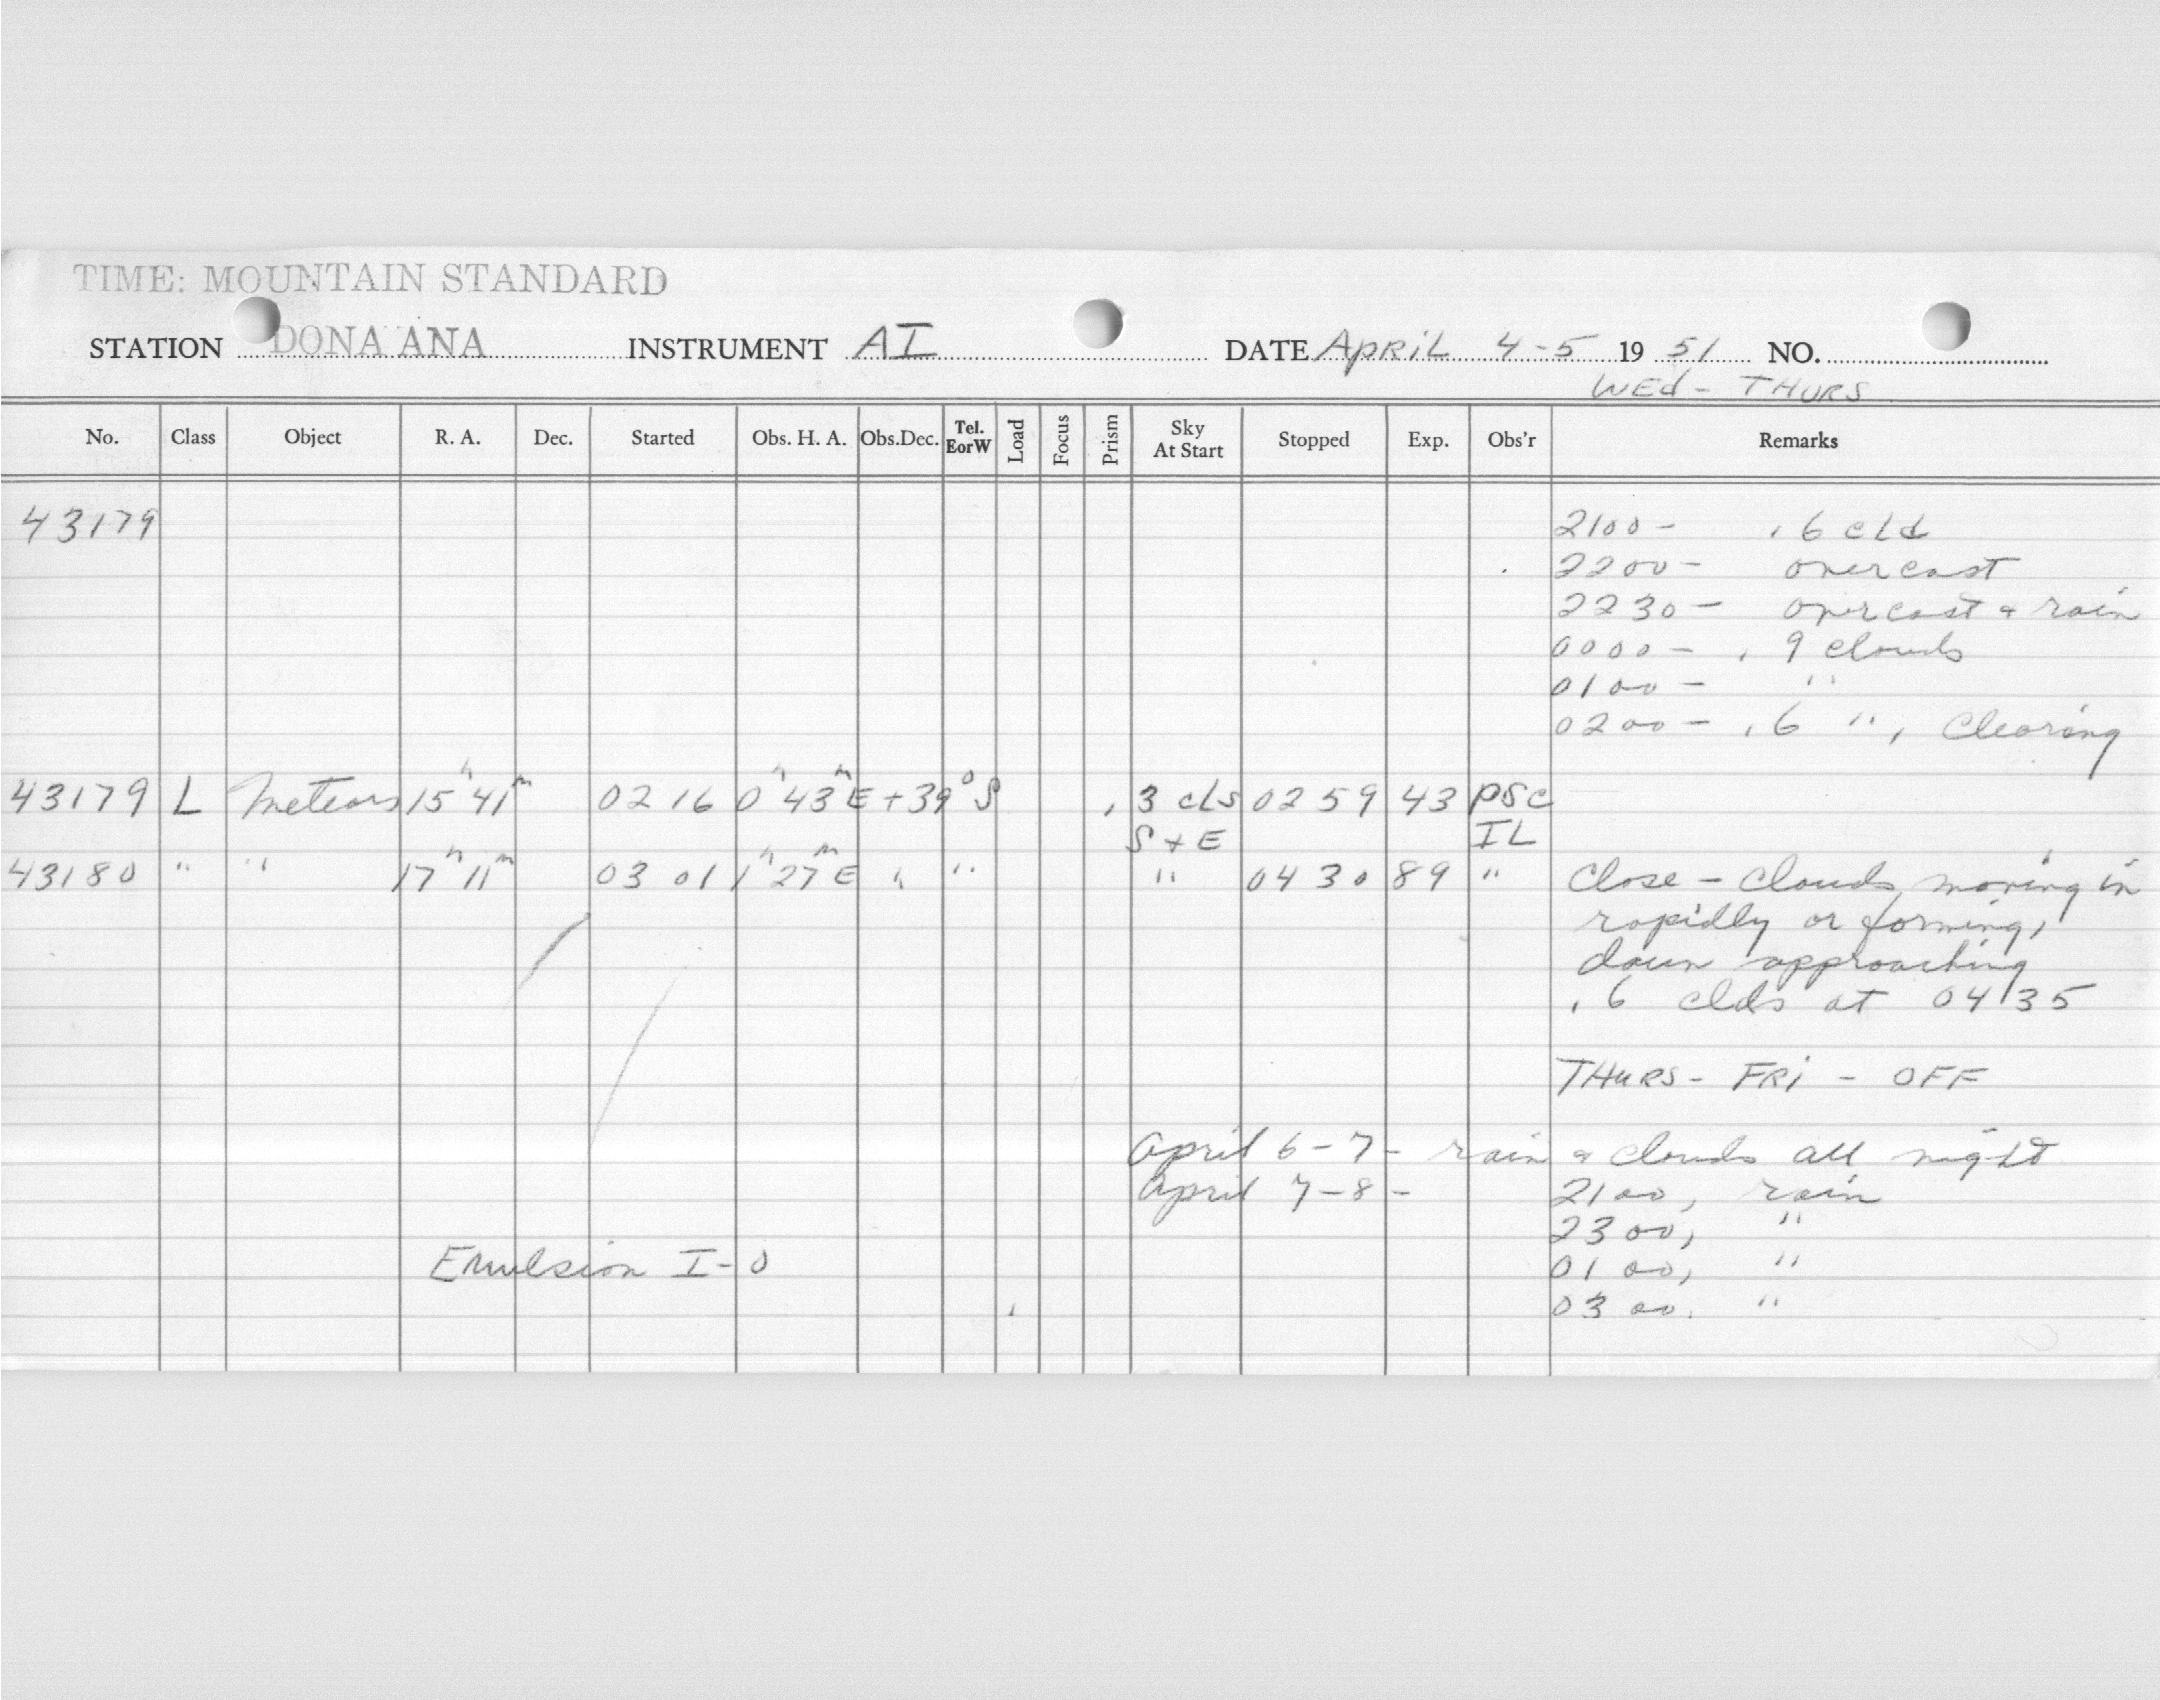 TIME: MOUNTAIN STANDARD
STATION DONA ANA INSTRUMENT AI DATE APRIL 4-5 19 51 NO.
WEd - THURS
No. Class Object R. A. Dec. Started Obs. H. A. Obs.Dec. Tel. EorW Load Focus Prism Sky At Start Stopped Exp. Obs'r Remarks
43179 2100 - .6 cld
2200 - overcast
2230 - overcast & rain
0000 - .9 clouds
0100 - "
0200 - .6 ", Clearing
43179 L Meteors 15h 41m 02 16 0h 43m E +39° S .3 cls 02 59 43 PSC
S + E IL
43180 " " 17h 11m 03 01 1h 27m E " " " 04 30 89 " Close - Clouds moving in
rapidly or forming,
dawn approaching
.6 clds at 04 35
THURS - FRI - OFF
April 6-7 - rain & clouds all night
April 7-8 - 2100, rain
2300, "
0100, "
Emulsion I-O
0300. "